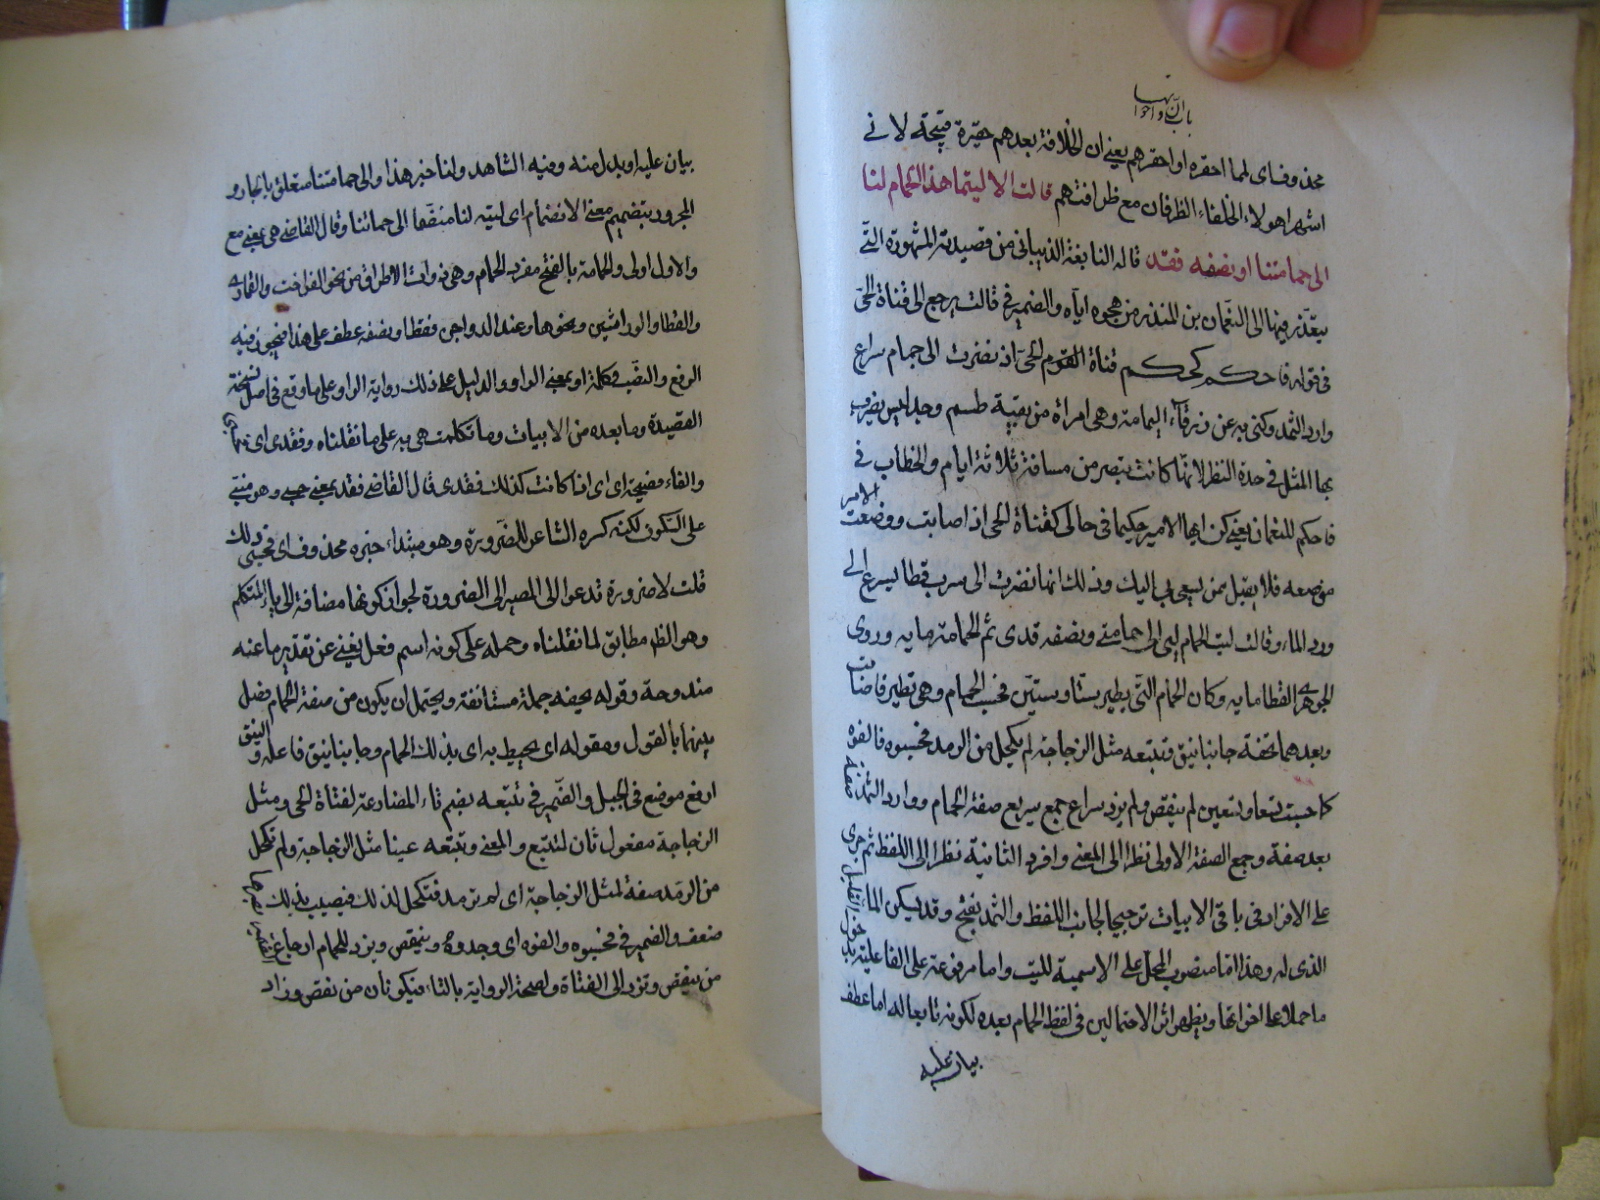 باب ان واخواتها
محذوف اى لما احقره او احقرهم يعنى ان الخلافة بعدهم حقيرة قبيحة لانى
اشهر اهولاء الخلفاء الظرفان مع ظرافتهم قالت الا ليتما هذا الحمام لنا
الى حمامتنا او نصفه فقد قاله النابغة الذبيانى من قصيدته المشهورة التى
يعتذر فيها الى النعمان بن المنذر من هجوه اياه والضمير فى قالت يرجع الى فتاة الحى
فى قوله فاحكم كحكم فتاة القوم الحى اذ نضرت الى حمام سراع
وارد الثمد وكنى به عن زرقاء اليمامة وهى امراة من بقية طسم وجديس يضرب
بها المثل فى حدة النظر لانها كانت تبصر من مسافة ثلاثة ايام والخطاب فى
فاحكم للنعمان يعنى كن ايها الامير حكيما فى حالى كفتاة الحى اذ اصابت ووضعت الامر
موضعه فلا يقبل بمن يسعى بى اليك وذلك انها نضرت الى سرب قطا يسرع الى
ورد الماء وقالت ليت الحمام ليه الى حمامتى ونصفه قدى تم الحمامة مايه وروى
الجوهرى القطا مايه وكان الحمام التى يطير ستا وستين فحسب الحمام وهى تطير فاضات
وبعدهما يحفه جانبا نيق وتتبعه مثل الزجاجة لم يكحل من الرمد فحسبوه فالفوه
كما حسبت تسعا وتسعين لم ينقص ولم يزد سراع جمع سريع صفة الحمام ووارد الثمد صفة
بعد صفة وجمع الصفة الاولى نظرا الى المعنى وافرد الثانية نظرا الى اللفظ ثم جرى
على الافراد فى باقى الابيات ترجيحا لجانب اللفظ والثمد بفتح وقد يسكن الماء القليل
الذى له وهذا اما منصوب المحل على الاسمية لليت واما مرفوعة على الفاعلية
ما حملا على اخواتها ويظهر اثر الاحتمالين فى لفظ الحمام بعده لكونه تابعا له اما عطف
بيان عليه
بيان عليه او بدل منه وفيه الشاهد ولنا خبر هذا والى حمامتنا متعلق بالجار و
المجرور بتضميم معنى الانضمام اى ليته لنا منضما الى حمامتنا وقال القاضى هى بمعنى مع
والاول اولى والحمامة بالفتح مفرد الحمام وهى ذوات الاطواق من نحو الفواخت والقمارى
والقطا والوراشين ونحوها وعند الدواجن فقط او نصفه عطف على هذا فيجوز فيه
الرفع والنصب فكلمة او بمعنى الواو والدليل على ذلك رواية الواو على ما وقع فى اصل نسخة
القصيدة وما بعده من الابيات وما تكلمت هى به على ما نقلناه وفقدى اى
والفاء فصيحة اى اى اذا كانت كذلك فقدى قال القاضى فقد بمعنى حسبى وهو مبنى
على السكون لكنه كسره الشاعر للضرورة وهو مبتداء خبره محذوف اى فحسبى ذلك
قلت لا ضرورة تدعو الى المصير الى الضرورة لجواز كونها مضافة الى ياء المتكلم
وهو الظ مطابق لما نقلناه وحمله على كونه اسم فعل يغنى عن تقدير ما عنه
مندوحة وقوله يحفه جملة مستانفة ويحتمل ان يكون من صفة الحمام فصل
بينهما بالقول ومقوله اى يحيط به اى بذلك الحمام وجانبا نيق فاعله والنيق
ارفع موضع فى الجبل والضمير فى تتبعه بضم تاء المضارعة لفتاة الحى ومثل
الزجاجة مفعول ثان لتتبع والمعنى وتتبعه عينا مثل الزجاجة ولم تكحل
من الرمد صفة لمثل الزجاجة اى لم ترمد فتكحل لذلك فيصيب بذلك
ضعف والضمير فى فحسبوه والفوه اى وجدوه وينقص ويزد للحمام ارجاع الضمير
من ينقص وتزد الى الفتاة ولصحة الرواية بالتاء فيكونان من نقص وزاد